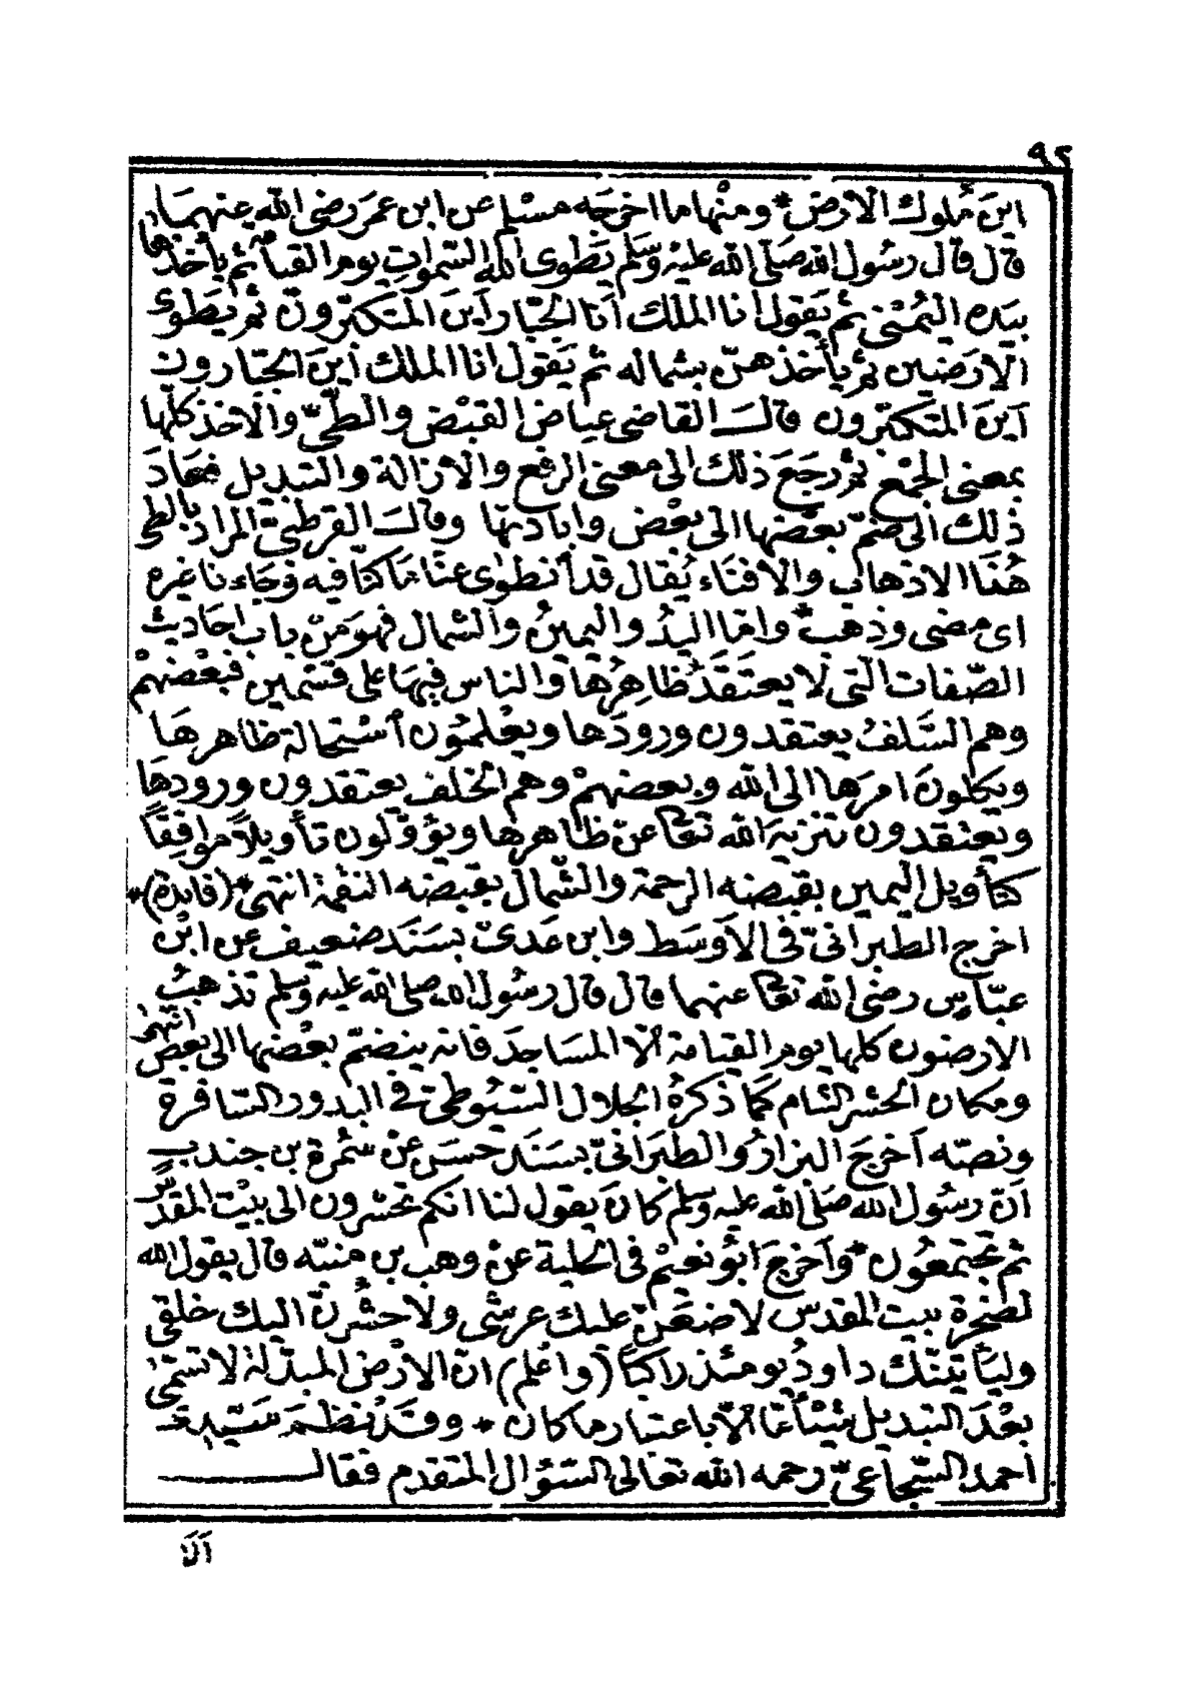 ٩٢
اينَ مُلوك الارض * ومنْها ما اخرجَه مسْلم عن ابن عمَر رضى الله عنهمَا
قال قال رسُول الله صَلى الله عليْه وسَلم يَطوى الله السّموات يوم القيامة ثم يأخذها
بيَده اليُمنى ثم يَقول انا الملك اَنا الجبّار اَينَ المتكبّرون ثم يَطوى
الارَضين ثم يأخذهنّ بشماله ثم يَقول انا الملك اَينَ الجبّارون
اَينَ المتكبّرون قالَ القاضى عياض القبْض والطىّ والاَخذ كلها
بمعنى الجمْع ثم رجَعَ ذلك الى معنى الرفع والازالة والتبديل فعَادَ
ذلك الى ضمّ بعْضها الى بعْض وابادتها وقالَ القرطبىّ المراد بالطى
هُنَا الاذهاب والافنَاء يُقال قد اَنطوى عنّا مَا كنّا فيه وجَاءنا غيره
اى مضى وذهب * وامّا اليدُ واليمينُ والشمال فهوَ منْ باب احَاديث
الصّفات التى لا يعتَقَدُ ظاهِرُها والناس فيهَا على قسْمين فبعْضهمْ
وهم السَّلفُ يعتقدون ورودَها ويعْلمُون اسْتحالة ظاهرهَا
ويكلونَ امرَها الى الله وبعضهمْ وهم الخلف يعتقدون ورودهَا
ويعتقدون تنزيهَ الله تعالى عنْ ظاهرها ويؤوّلون تأويلاً موافِقاً
كتأويل اليمين بقبضه الرحمة والشّمال بقبضه النقمة انتهى * (فايدة) *
اخرج الطبرانىّ فى الاَوسَط وابن عَدىّ بسَنَد ضعيف عن ابْن
عبّاس رضى الله تعالى عنهما قال قال رسُول الله صلى الله عليه وسلم تذهبُ
الارضون كلها يوم القيامة اِلّا المسَاجدَ فانه ينضمّ بعْضها الى بعْض انتهى
ومكان الحشر الشام كمَا ذكرهُ الجلال السّيُوطىّ فى البدور السّافرة
ونصّه اَخرجَ البزارُ والطبَرانىّ بسَنَد حسَن عنْ سَمُرة بن جندب
اَنّ رسُول الله صَلى الله عليه وسَلم كانَ يَقول لنا انكم تحْشرون الى بيْت المقدّس
ثم تجْتمعُون * وَاَخرجَ ابُو نعيْم فى الحلية عنْ وهب بن منبّه قال يقول الله
لصَخْرة بيت المقدس لاضعَنّ عليك عرشى ولاَحشُرنّ اليك خلقى
وليَأتيَنّك داودُ يومئذ راكباً (واعْلم) انّ الارْضَ المبدّلة لا تسَمّى
بعْدَ التبديل شَأمًا الّا باعتبار ما كان * وقَدْ نَظمَ سَيّدى
اَحمد السّجاعىّ رحمه الله تعَالى السّؤال المتقدم فقال
اَلَا